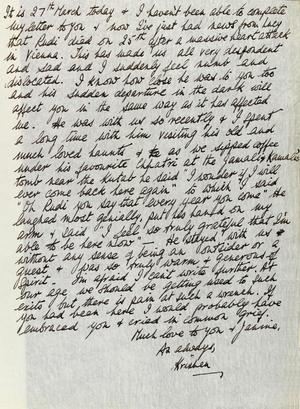 It is 27th March today & I haven't been able to complete
my letter to you & now I've just had news from Lucy
that Rudi died on 25th after a massive heart attack
in Vienna. This has made us all very despondent
and sad and I suddenly feel numb and
dislocated. I know how close he was to you too
and his sudden departure in the dark will
affect you in the same way as it has affected
me. He was with us so recently & I spent
a long time with him visiting his old and
much loved haunts & as we sipped coffee
under his favourite chhatri at the Jamali Kamali
tomb near the Kutab he said "I wonder if I will
ever come back here again" to which I said
"Oh Rudi you say that every year you come" He
laughed most genially, put his hand on my
arm & said "I feel so truly grateful that I'm
able to be here now" — He stayed with us
without any sense of being an outsider or a
guest, & was so truly warm & generous of
spirit. I'm afraid I can't write further. At
our age we should be getting used to such
exits, but there is pain at such a wrench. If
you had been here I would probably have
embraced you & cried in common grief.
Much love to you & Janine,
As always,
Krishen